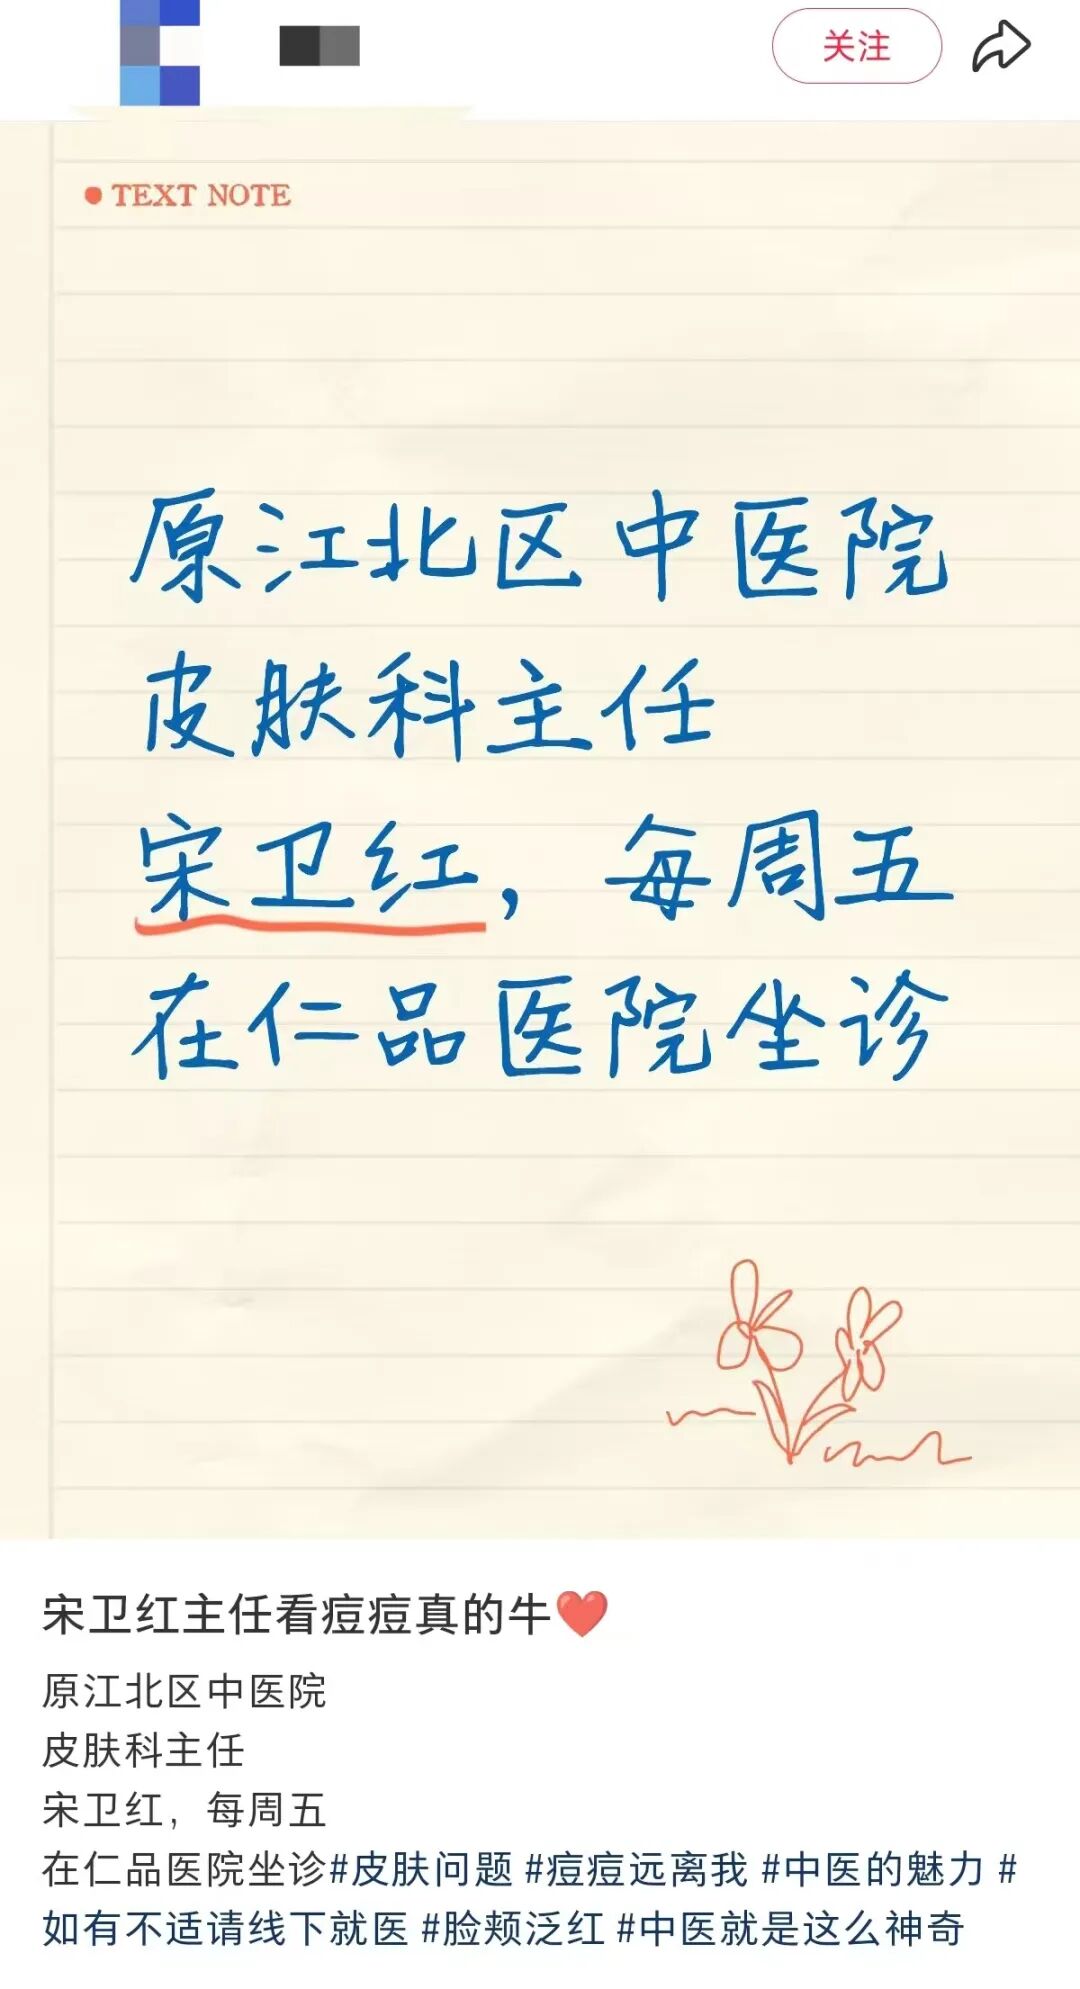 关注
TEXT NOTE
原江北区中医院
皮肤科主任
宋卫红，每周五
在仁品医院坐诊
宋卫红主任看痘痘真的牛❤️
原江北区中医院
皮肤科主任
宋卫红，每周五
在仁品医院坐诊#皮肤问题 #痘痘远离我 #中医的魅力 #
如有不适请线下就医 #脸颊泛红 #中医就是这么神奇